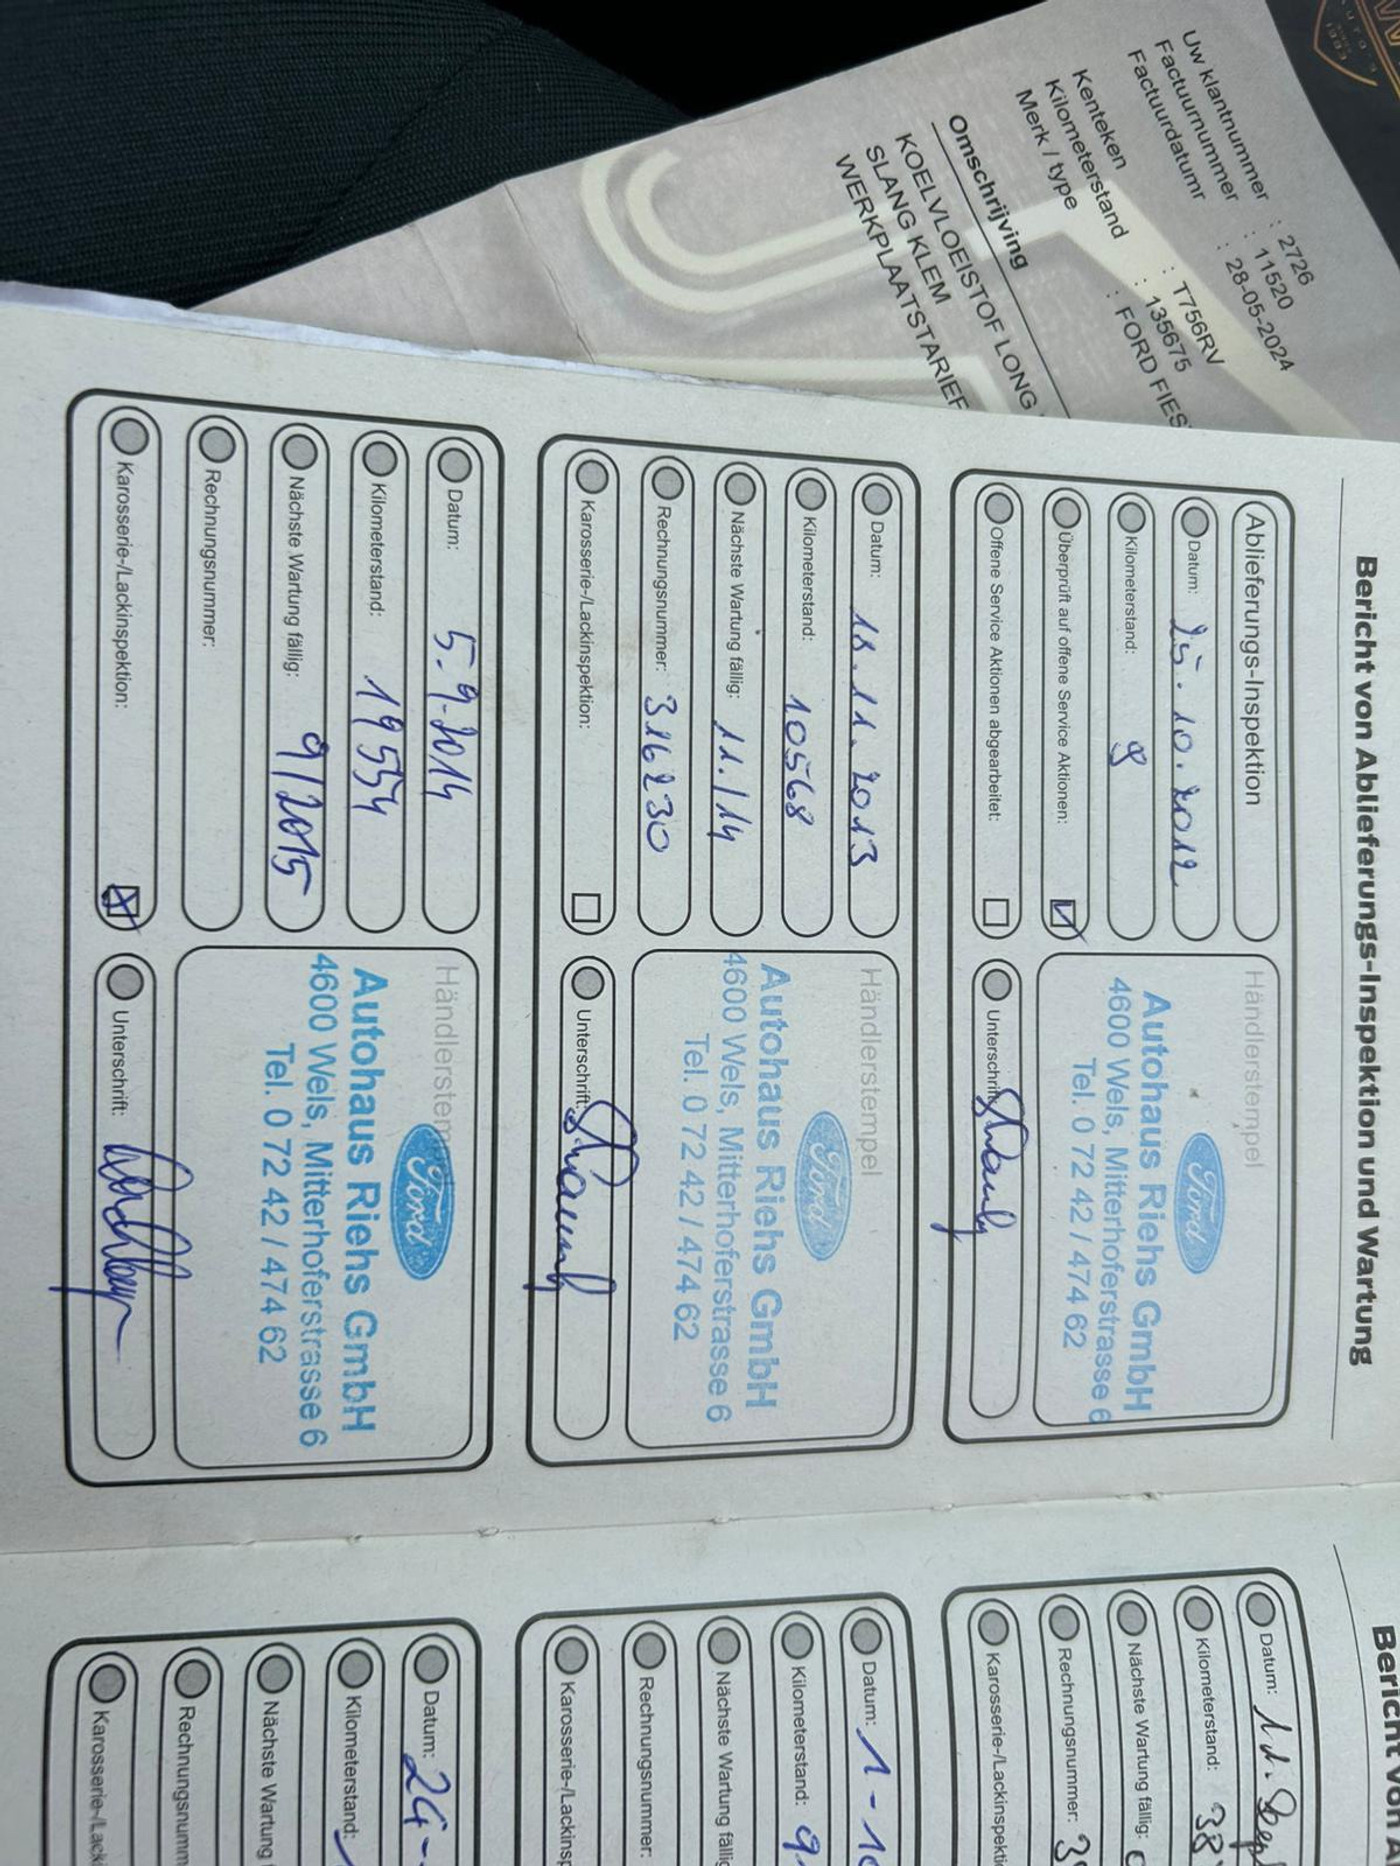 Uw klantnummer : 2726
Factuurnummer : 11520
Factuurdatumr : 28-05-2024
Kenteken : T756RV
Kilometerstand : 135675
Merk / type : FORD FIES
Omschrijving
KOELVLOEISTOF LONG
SLANG KLEM
WERKPLAATSTARIEF
Bericht von Ablieferungs-Inspektion und Wartung
Ablieferungs-Inspektion
Datum: 25.10.2012
Kilometerstand: 8
Überprüft auf offene Service Aktionen:
Offene Service Aktionen abgearbeitet:
Händlerstempel
Ford
Autohaus Riehs GmbH
4600 Wels, Mitterhoferstrasse 6
Tel. 0 72 42 / 474 62
Unterschrift:
Datum: 18.11.2013
Kilometerstand: 10568
Nächste Wartung fällig: 11./14
Rechnungsnummer: 316230
Karosserie-/Lackinspektion:
Händlerstempel
Ford
Autohaus Riehs GmbH
4600 Wels, Mitterhoferstrasse 6
Tel. 0 72 42 / 474 62
Unterschrift:
Datum: 5.9.2014
Kilometerstand: 19554
Nächste Wartung fällig: 9/2015
Rechnungsnummer:
Karosserie-/Lackinspektion:
Händlerstem
Ford
Autohaus Riehs GmbH
4600 Wels, Mitterhoferstrasse 6
Tel. 0 72 42 / 474 62
Unterschrift:
Bericht von A
Datum:
Kilometerstand: 38
Nächste Wartung fällig:
Rechnungsnummer: 3
Karosserie-/Lackinspekti
Datum: 1-10
Kilometerstand: 9
Nächste Wartung fällig
Rechnungsnummer:
Karosserie-/Lackinsp
Datum: 24-
Kilometerstand:
Nächste Wartung
Rechnungsnumm
Karosserie-/Lack